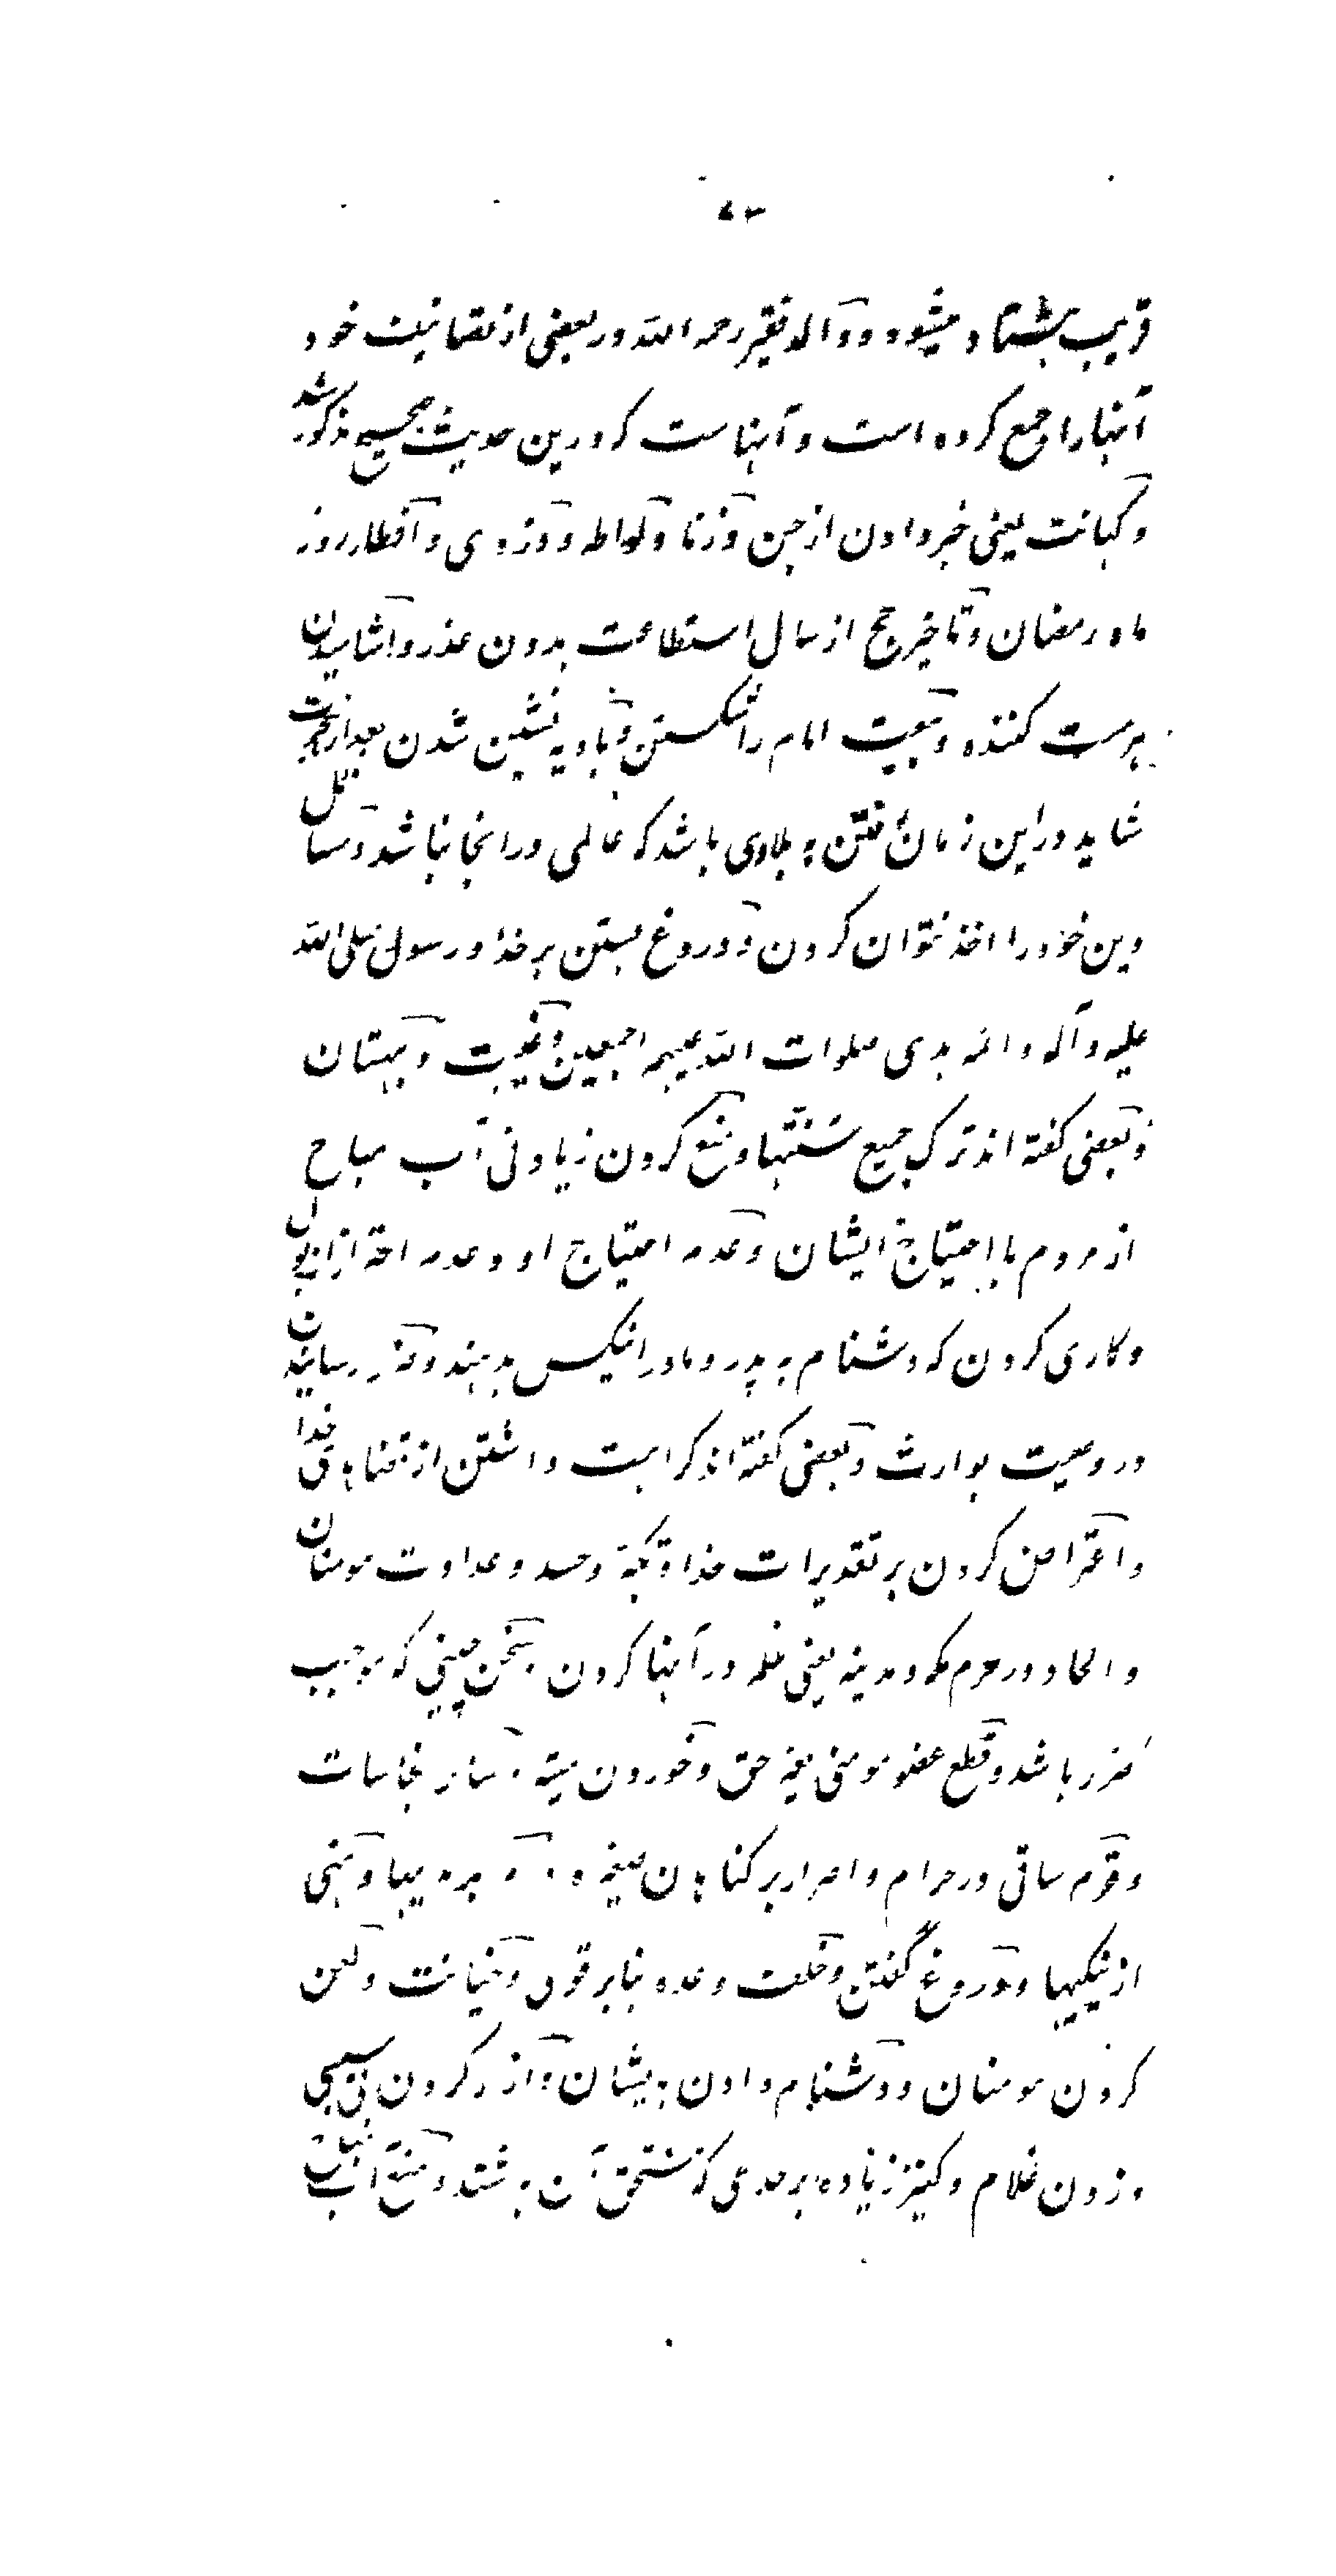 ۷۳
قریب بهشتاد میشود و والد فقیر رحمه الله در بعضی از تصانیف خود
آنها را جمع کرده است و آنهاست که درین حدیث صحیح مذکور شد
و کهانت یعنی خبر دادن از جن و زنا و لواطه و دزدی و افطار روز
ماه رمضان و تاخیر حج از سال استطاعت بدون عذر و آشامیدن
هر مست کننده و بیعت امام را شکستن و بادیه نشین شدن بعد از هجرت
شاید در این زمان رفتن به بلادی باشد که عالمی در انجا نباشد و مسائل
دین خود را اخذ نتوان کردن و دروغ بستن بر خدا و رسول صلی الله
علیه و آله و ائمه هدی صلوات الله علیهم اجمعین و غیبت و بهتان
و بعضی گفته اند ترک جمیع سنتها و منع کردن زیادتی آب مباح
از مردم با احتیاج ایشان و عدم احتیاج او و عدم احتراز از بول
و کاری کردن که دشنام به پدر و مادر اینکس بدهند و رسانیدن
در وصیت بوارث و بعضی گفته اند کراهت داشتن از قضاهای خدا
و اعتراض کردن بر تقدیرات خدا و تکبر و حسد و عداوت مومنان
و الحاد در حرم مکه و مدینه یعنی ظلم در آنها کردن و سخن چینی که موجب
ضرر باشد و قطع عضو مومنی بغیر حق و خوردن میته و سائر نجاسات
و قرم ساقی در حرام و اصرار بر گناهان صغیره و امر به بدیها و نهی
از نیکیها و دروغ گفتن و خلف وعده بنا بر قولی و خیانت و لعن
کردن مومنان و دشنام دادن بایشان و آزار کردن بی سببی
و زدن غلام و کنیز زیاده بر حدی که مستحق آن باشند و منع آب